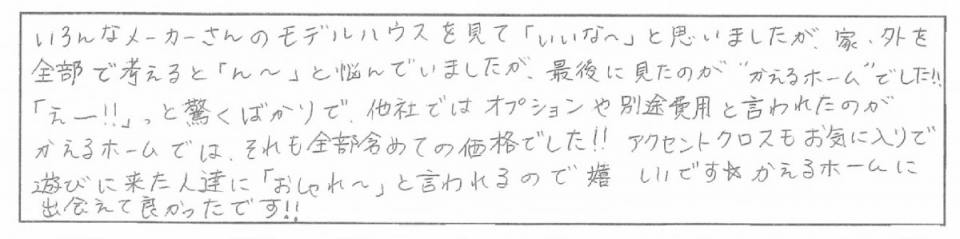 いろんなメーカーさんのモデルハウスを見て「いいな～」と思いましたが、家、外を
全部で考えると「ん～」と悩んでいましたが、最後に見たのが"かえるホーム"でした!!
「えー!!」っと驚くばかりで、他社ではオプションや別途費用と言われたのが
かえるホームでは、それも全部含めての価格でした!! アクセントクロスもお気に入りで
遊びに来た人達に「おしゃれ～」と言われるので嬉 しいです☆かえるホームに
出会えて良かったです!!